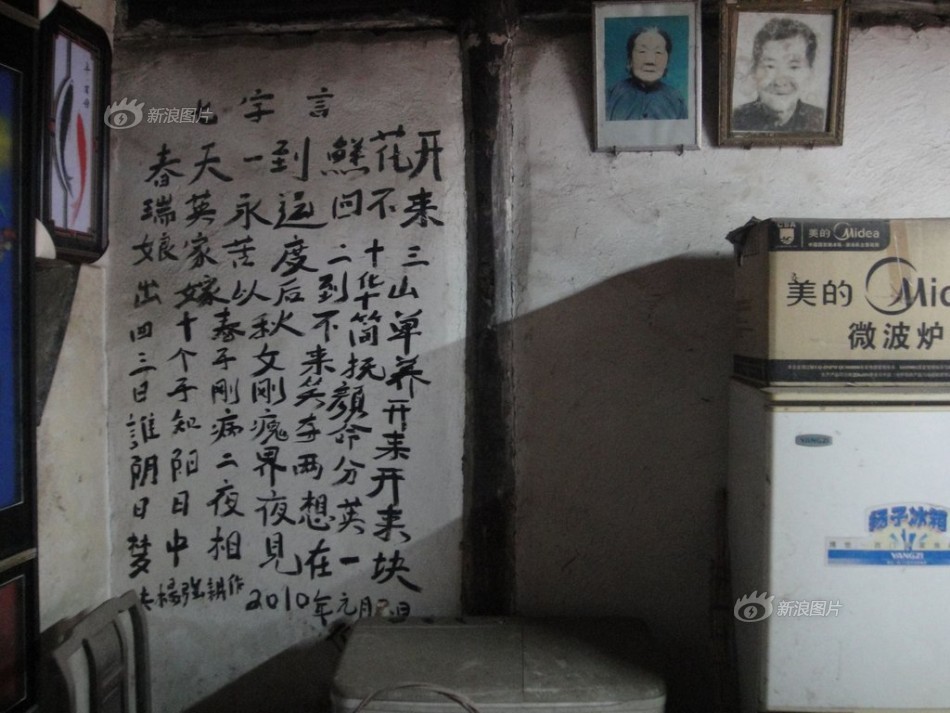 七字言
春天一到鮮花开
瑞英永远回不来
娘家苦度二十三
出嫁以后到华山
四十春秋不简单
三个子女来抚养
日子刚刚笑颜开
誰知病魔夺命来
阴阳二界两分开
日日夜夜想英来
梦中相见在一块
2010年元月
美的 Midea
美的 Mid
微波炉
YANGZI
扬子冰箱
YANGZI
新浪图片
新浪图片